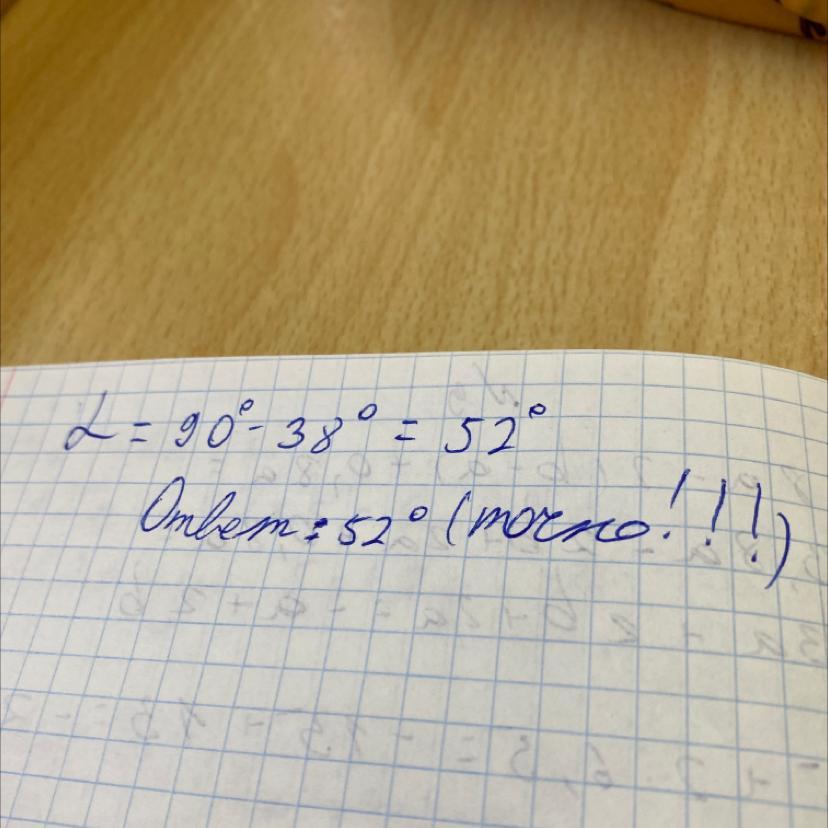 α = 90° - 38° = 52°
Ответ: 52° (точно!!!)